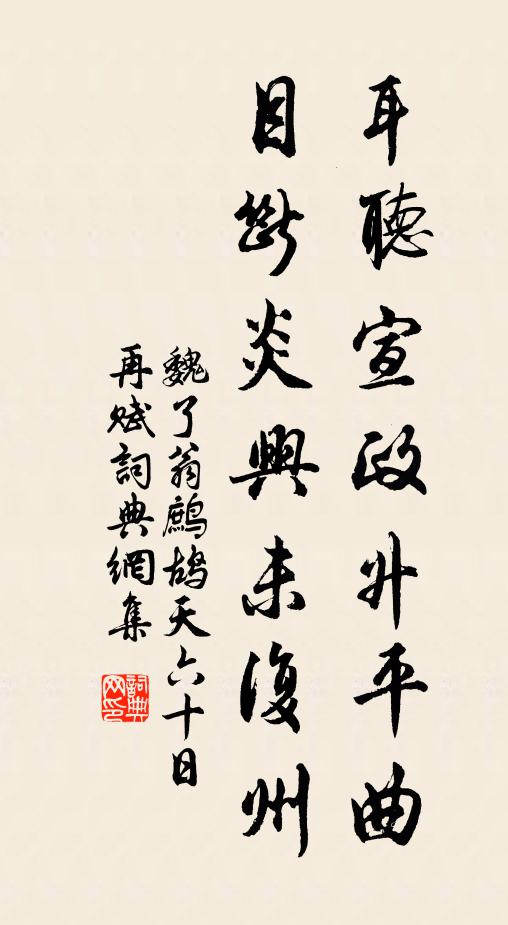 耳聽宣政升平曲
目斷炎興未復州
魏了翁鷓鴣天六十日
再賦詞典網集
詞典網印